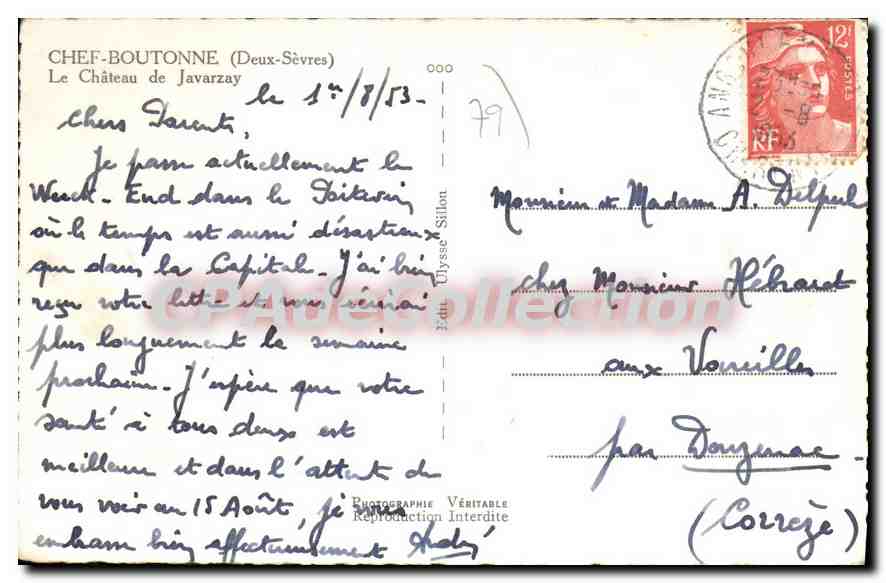 CHEF-BOUTONNE (Deux-Sèvres)
Le Château de Javarzay
le 1er/8/53-
Chers Parents,
Je passe actuellement le
Week-End dans le Poitevin
où le temps est aussi désastreux
que dans la Capitale. J'ai bien
reçu votre lettre et vous écrirai
plus longuement la semaine
prochaine. J'espère que votre
santé à tous deux est
meilleure et dans l'attente de
vous voir au 15 Août, je vous
embrasse bien affectueusement André
79
Edit. Ulysse Sillon
PHOTOGRAPHIE VÉRITABLE
Reproduction Interdite
12F
POSTES
RF
Monsieur & Madame A. Delpeuch
chez Monsieur Hébrard
aux Vareilles
par Donzenac
(Corrèze)
CPAdeCollection